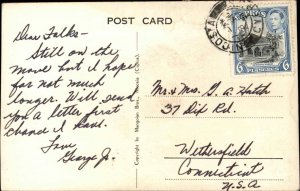 POST CARD
Dear Folks -
Still on the
move but I hope
for not much
longer. Will send
you a letter first
chance I have.
Love
George Jr.
Copyright by Mangoian Bros., Nicosia (Cyprus).
CYPRUS
6
6
PIASTRES
Mr. & Mrs. G. A. Hatch
37 Dix Rd.
Wethersfield
Connecticut
U.S.A